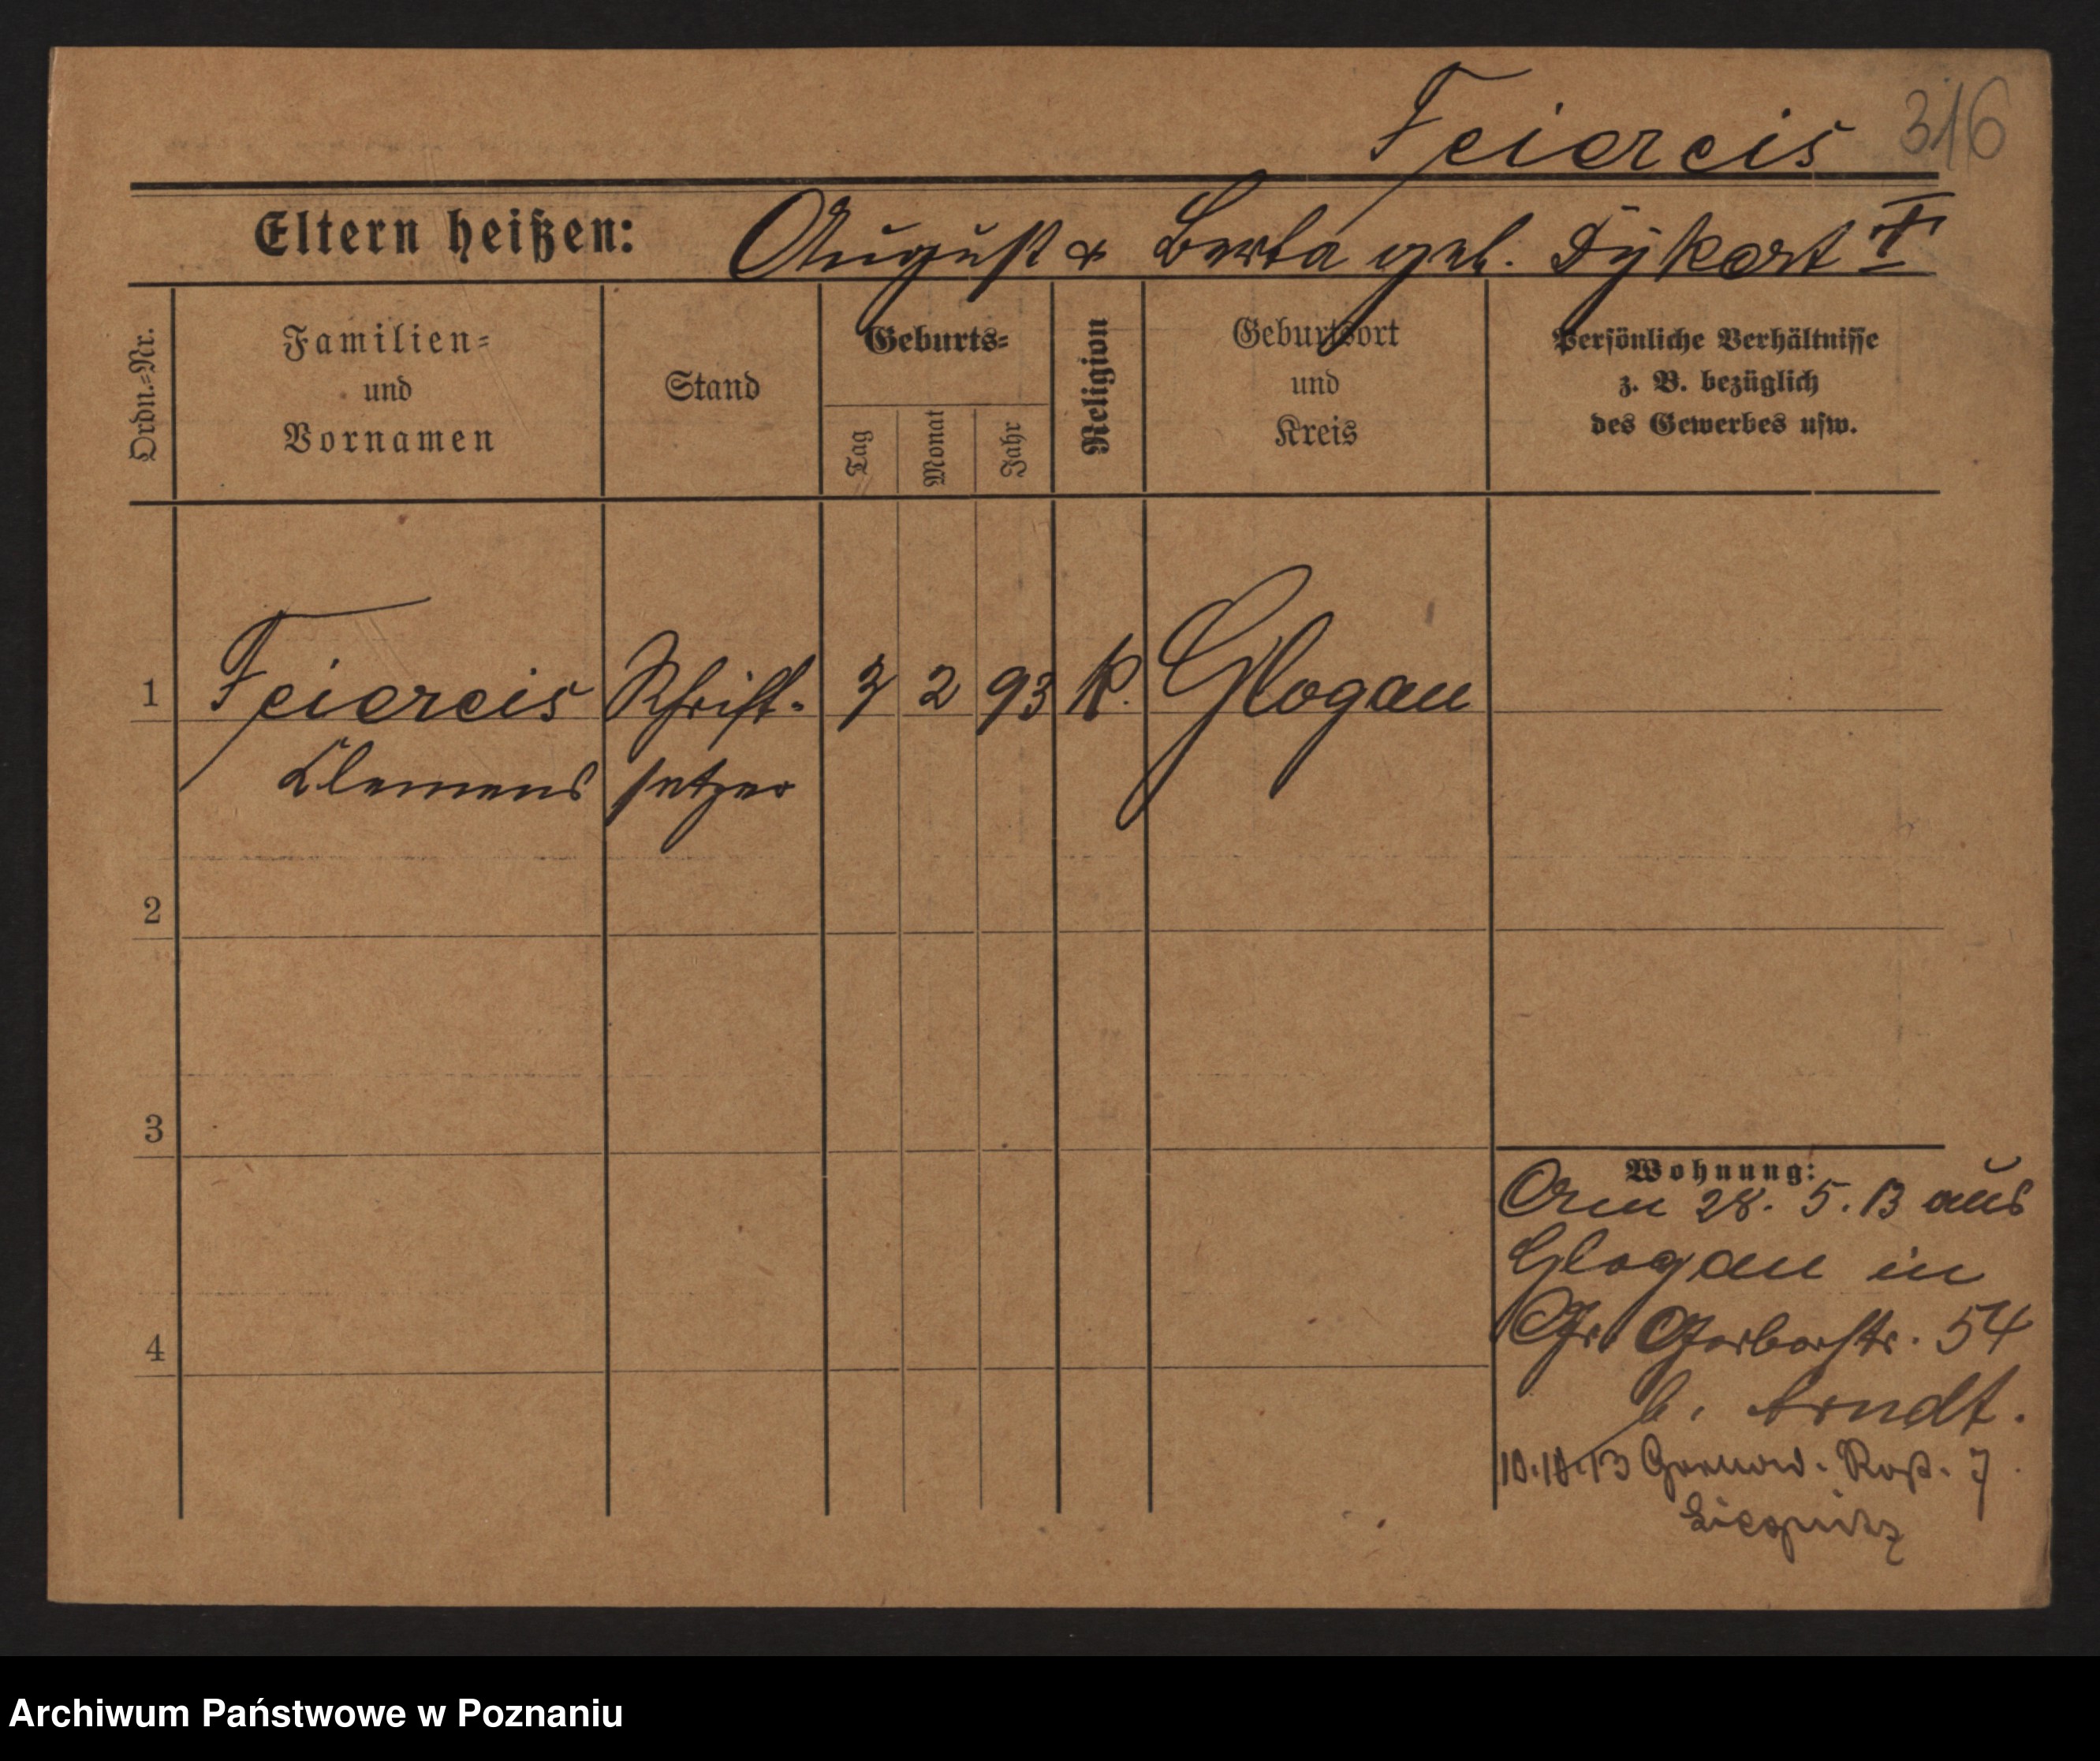 Feiereis 316
Eltern heißen: August & Berta geb. Dykart I
Ordn.-Nr.
Familien-
und
Vornamen
Stand
Geburts-
Tag
Monat
Jahr
Religion
Geburtsort
und
Kreis
Persönliche Verhältnisse
z. B. bezüglich
des Gewerbes usw.
1 Feiereis Schrift- 3 2 93 K. Glogau
Clemens setzer
2
3
4
Wohnung:
Am 28. 5. 13 aus
Glogau in
Gr. Gerberstr. 54
b. Arndt.
10.10.13 7
Liegnitz
Archiwum Państwowe w Poznaniu